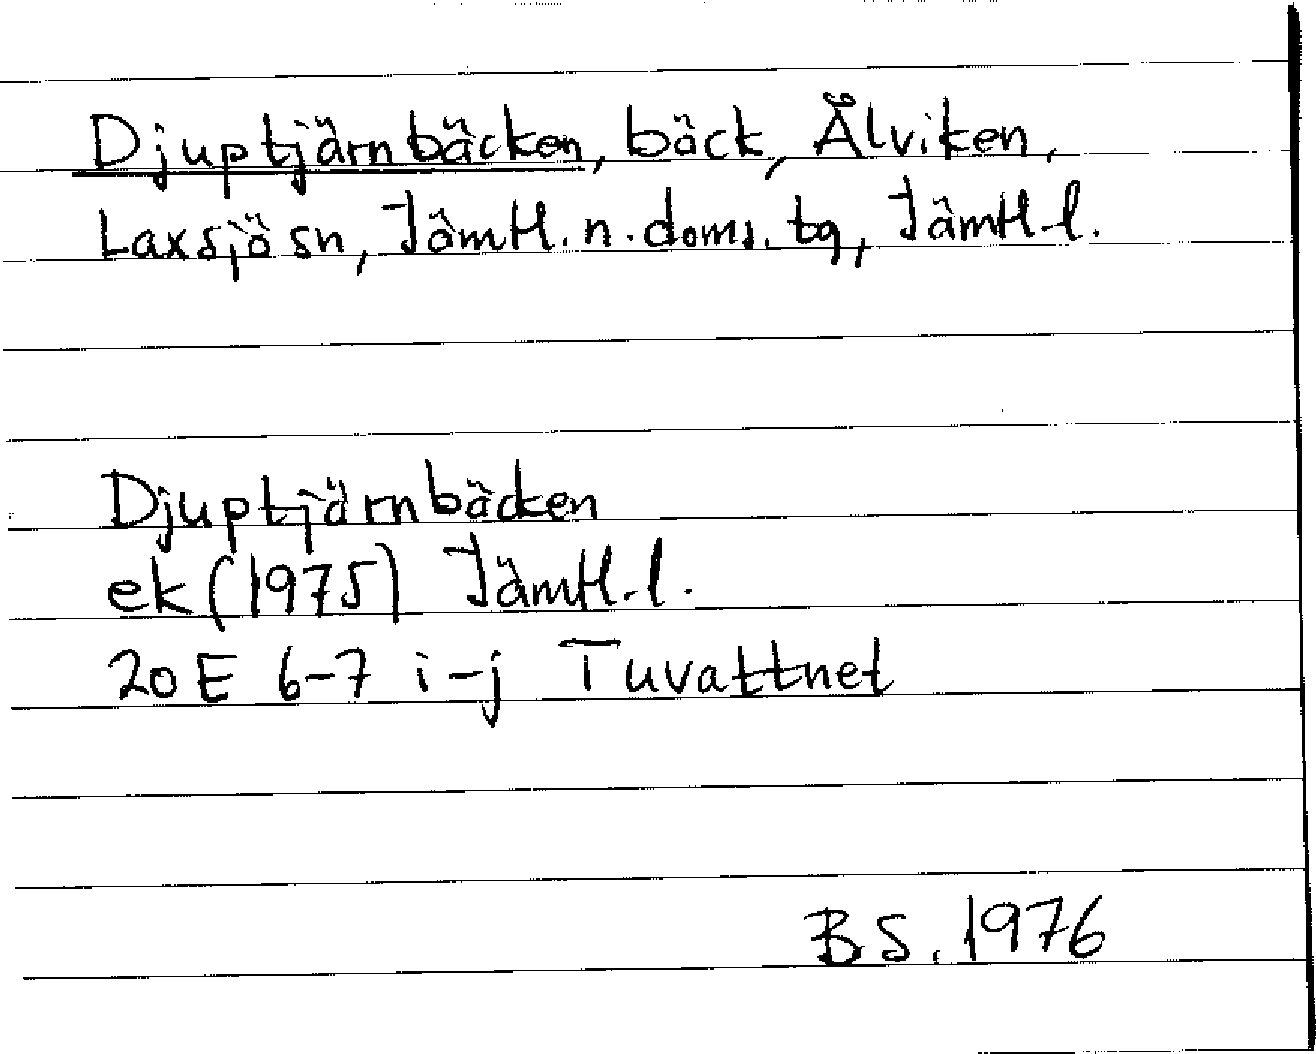 Djuptjärnbäcken, bäck, Älviken,
Laxsjö sn, Jämtl. n. doms. tg, Jämtl. l.
Djuptjärnbäcken
ek (1975) Jämtl. l.
20E 6-7 i-j Tuvattnet
B S. 1976